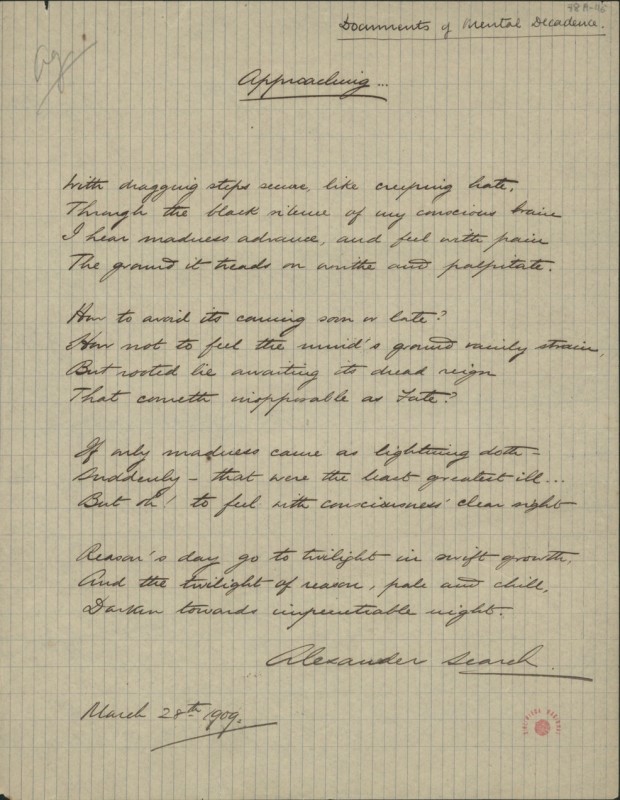 Documents of Mental Decadence.
Approaching...
With dragging steps secure, like creeping hate,
Through the black silence of my conscious brain
I hear madness advance, and feel with pain
The ground it treads on writhe and palpitate.
How to avoid its coming soon or late?
How not to feel the mind's ground vainly strain,
But rooted lie awaiting its dread reign
That cometh inopposable as Fate?
If only madness came as lightning doth –
Suddenly – that were the least greatest ill...
But oh! to feel with consciousness' clear sight
Reason's day go to twilight in swift growth,
And the twilight of reason, pale and chill,
Darken towards impenetrable night.
Alexander Search.
March 28th 1909.